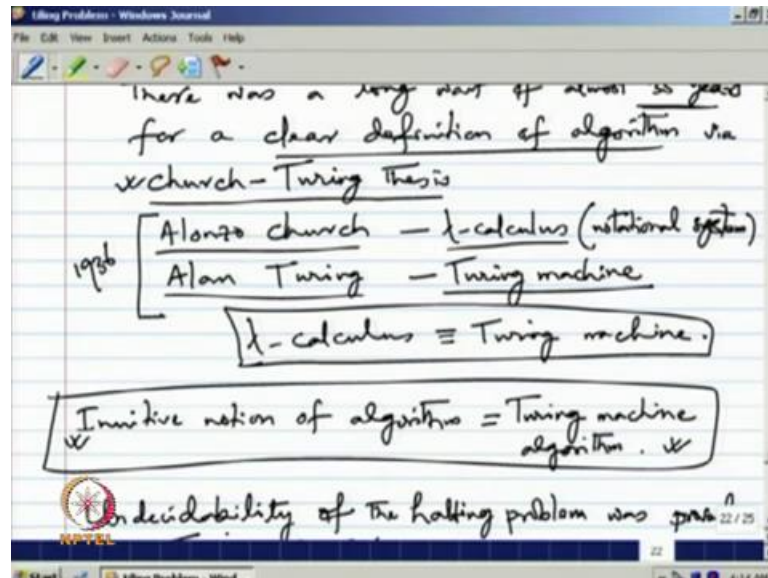 tiling Problem - Windows Journal
File Edit View Insert Actions Tools Help
There was a long wait of almost 35 years
for a clear definition of algorithm via
Church-Turing Thesis
1936
Alonzo Church — λ-calculus (notational system)
Alan Turing — Turing machine
λ-calculus ≡ Turing machine.
Intuitive notion of algorithms = Turing machine
algorithm.
Undecidability of the halting problem was
22 / 25
NPTEL
22